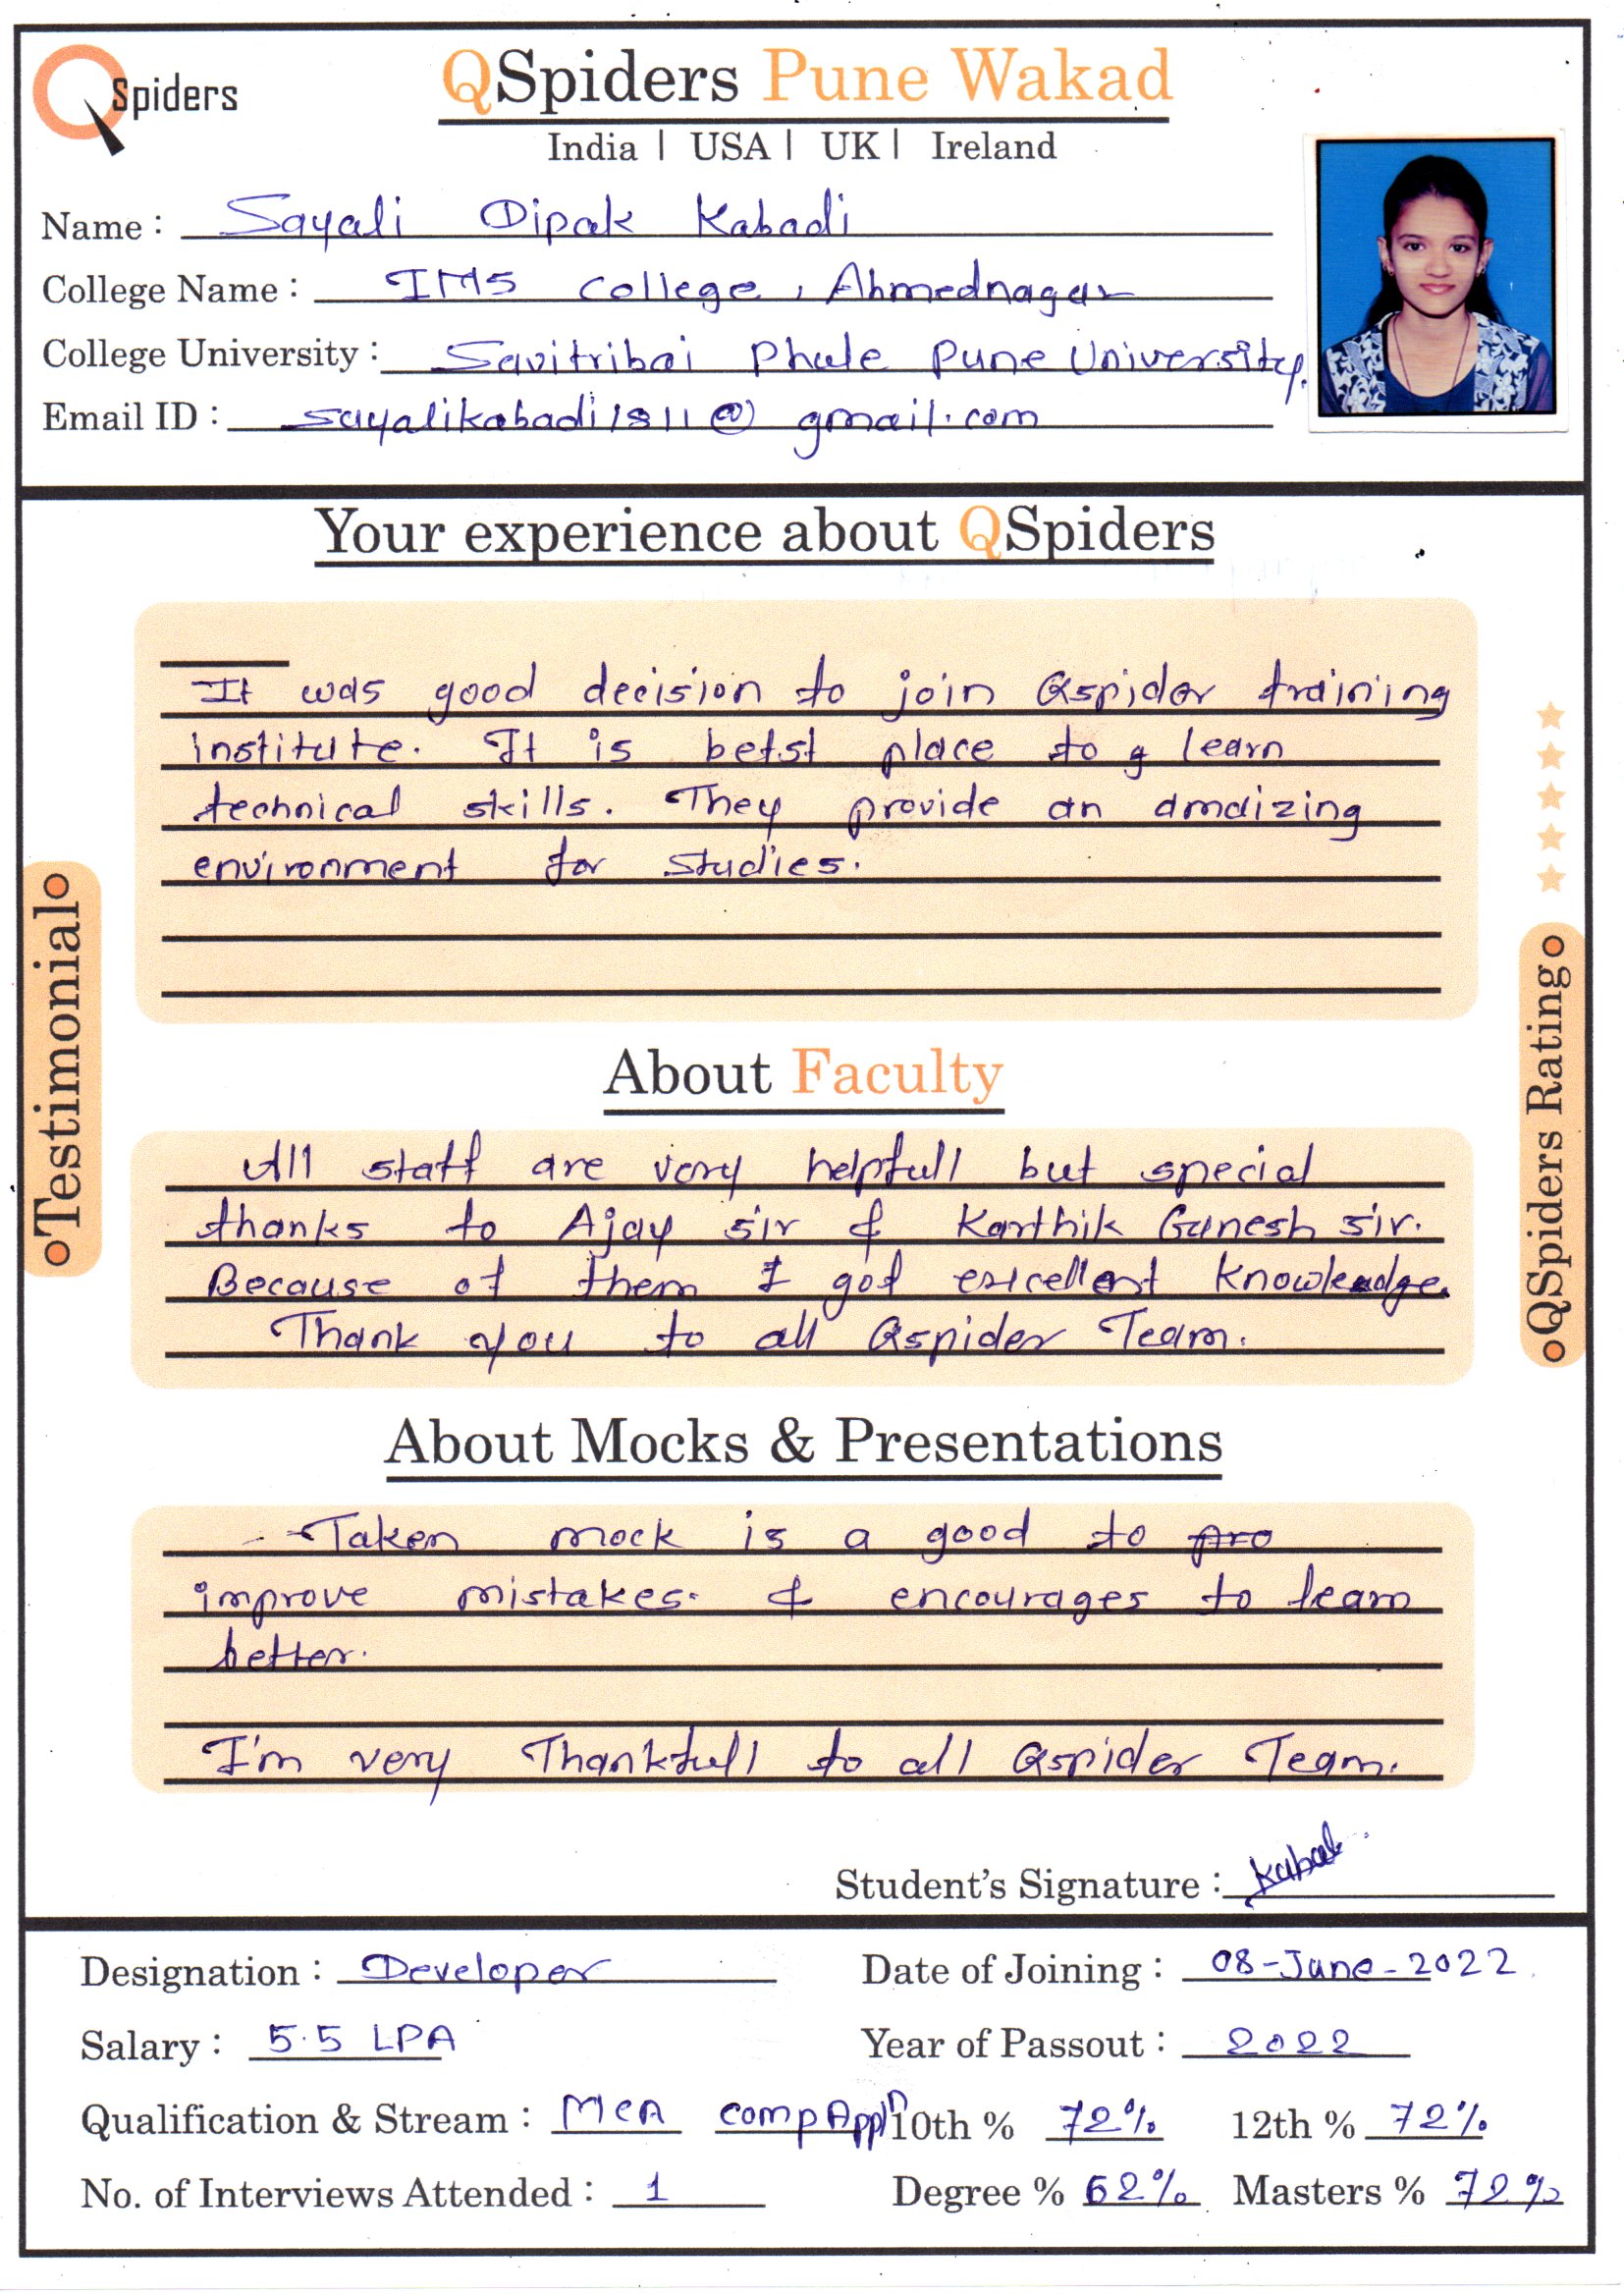 QSpiders
QSpiders Pune Wakad
India | USA | UK | Ireland
Name : Sayali Dipak Kabadi
College Name : IMS College, Ahmednagar
College University : Savitribai Phule Pune University.
Email ID : sayalikabadi1811@gmail.com
Your experience about QSpiders
It was good decision to join Qspider training
institute. It is betst place to g learn
technical skills. They provide an amaizing
environment for studies.
Testimonial
QSpiders Rating
About Faculty
All staff are very helpfull but special
thanks to Ajay sir & Karthik Ganesh sir.
Because of them I got excellent knowledge.
Thank you to all Qspider Team.
About Mocks & Presentations
- Taken mock is a good to pro
improve mistakes. & encourages to learn
better.
I'm very Thankfull to all Qspider Team.
Student's Signature : Kabadi
Designation : Developer Date of Joining : 08-June-2022
Salary : 5.5 LPA Year of Passout : 2022
Qualification & Stream : MCA comp Appln 10th % 72% 12th % 72%
No. of Interviews Attended : 1 Degree % 62% Masters % 72%